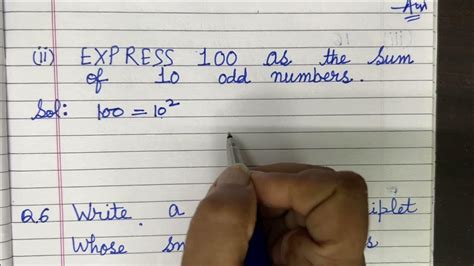 Ans
(ii) EXPRESS 100 as the sum
of 10 odd numbers.
Sol: 100 = 10²
Q.6 Write a iplet
Whose sm s